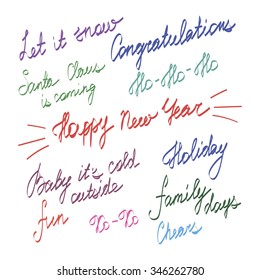 Let it snow
Congratulations
Santa Claus
is coming
Ho-Ho-Ho
Happy New Year
Baby it's cold
outside
Holiday
fun
Xo-Xo
family
days
Cheers
shutterstock.com · 346262780